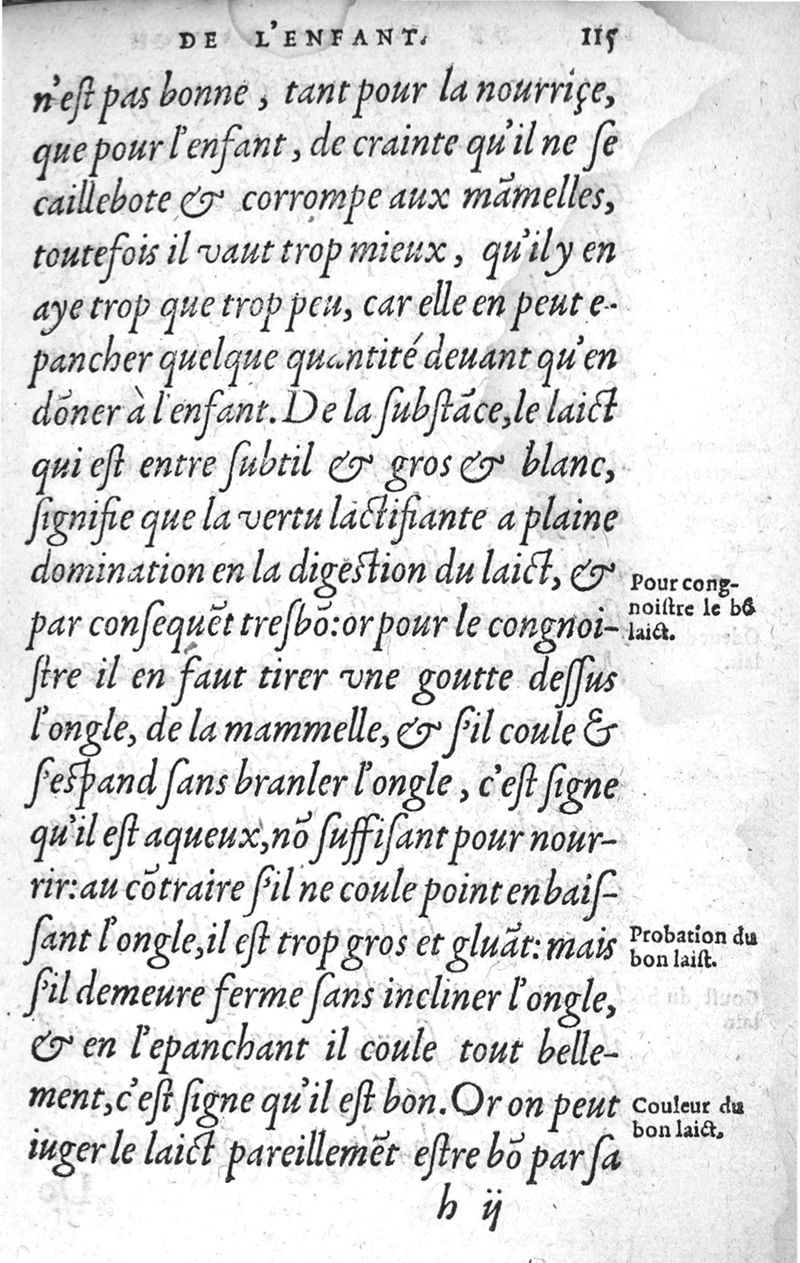 DE L'ENFANT. 115
n'eſt pas bonne, tant pour la nourriçe,
que pour l'enfant, de crainte qu'il ne ſe
caillebote & corrompe aux mãmelles,
toutefois il vaut trop mieux, qu'il y en
aye trop que trop peu, car elle en peut e-
pancher quelque quantité deuant qu'en
dõner à l'enfant. De la ſubſtãce, le laict
qui eſt entre ſubtil & gros & blanc,
ſignifie que la vertu lactifiante a plaine
domination en la digeſtion du laict, &
par conſequẽt treſbõ: or pour le congnoi-
ſtre il en faut tirer vne goutte deſſus
l'ongle, de la mammelle, & ſ'il coule &
ſ'eſpand ſans branler l'ongle, c'eſt ſigne
qu'il eſt aqueux, nõ ſuffiſant pour nour-
rir: au cõtraire ſ'il ne coule point en baiſ-
ſant l'ongle, il eſt trop gros et gluãt: mais
ſ'il demeure ferme ſans incliner l'ongle,
& en l'epanchant il coule tout belle-
ment, c'eſt ſigne qu'il eſt bon. Or on peut
iuger le laict pareillemẽt eſtre bõ par ſa
h ij
Pour cong-
noiſtre le bõ
laict.
Probation du
bon laiſt.
Couleur du
bon laict,